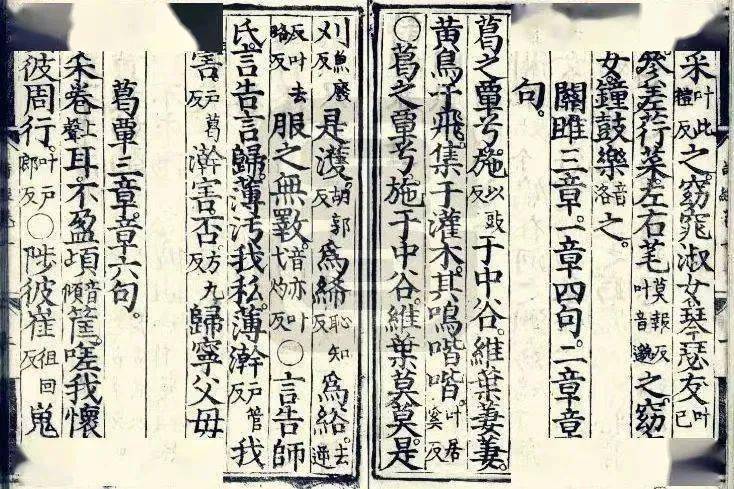 采叶此禮反之。窈窕淑女。琴瑟友叶已
參差荇菜。左右芼莫報反叶音邈之。窈
女。鐘鼓樂音洛之。
關雎三章。一章四句。二章章
句。
葛之覃兮。施以豉反于中谷。維葉萋萋。
黃鳥于飛。集于灌木。其鳴喈喈。叶居奚反
○葛之覃兮。施于中谷。維葉莫莫。是
刈魚廢反是濩。胡郭反為絺恥知反為綌。去逆
反叶去略反服之無斁。音亦叶弋灼反○言告師
氏。言告言歸。薄污我私。薄澣戶管反我
害戶葛反澣害否。方九反歸寧父母
葛覃三章。章六句。
采卷上聲耳。不盈頃音傾筐。嗟我懷
彼周行。叶戶郎反○陟彼崔徂回反嵬